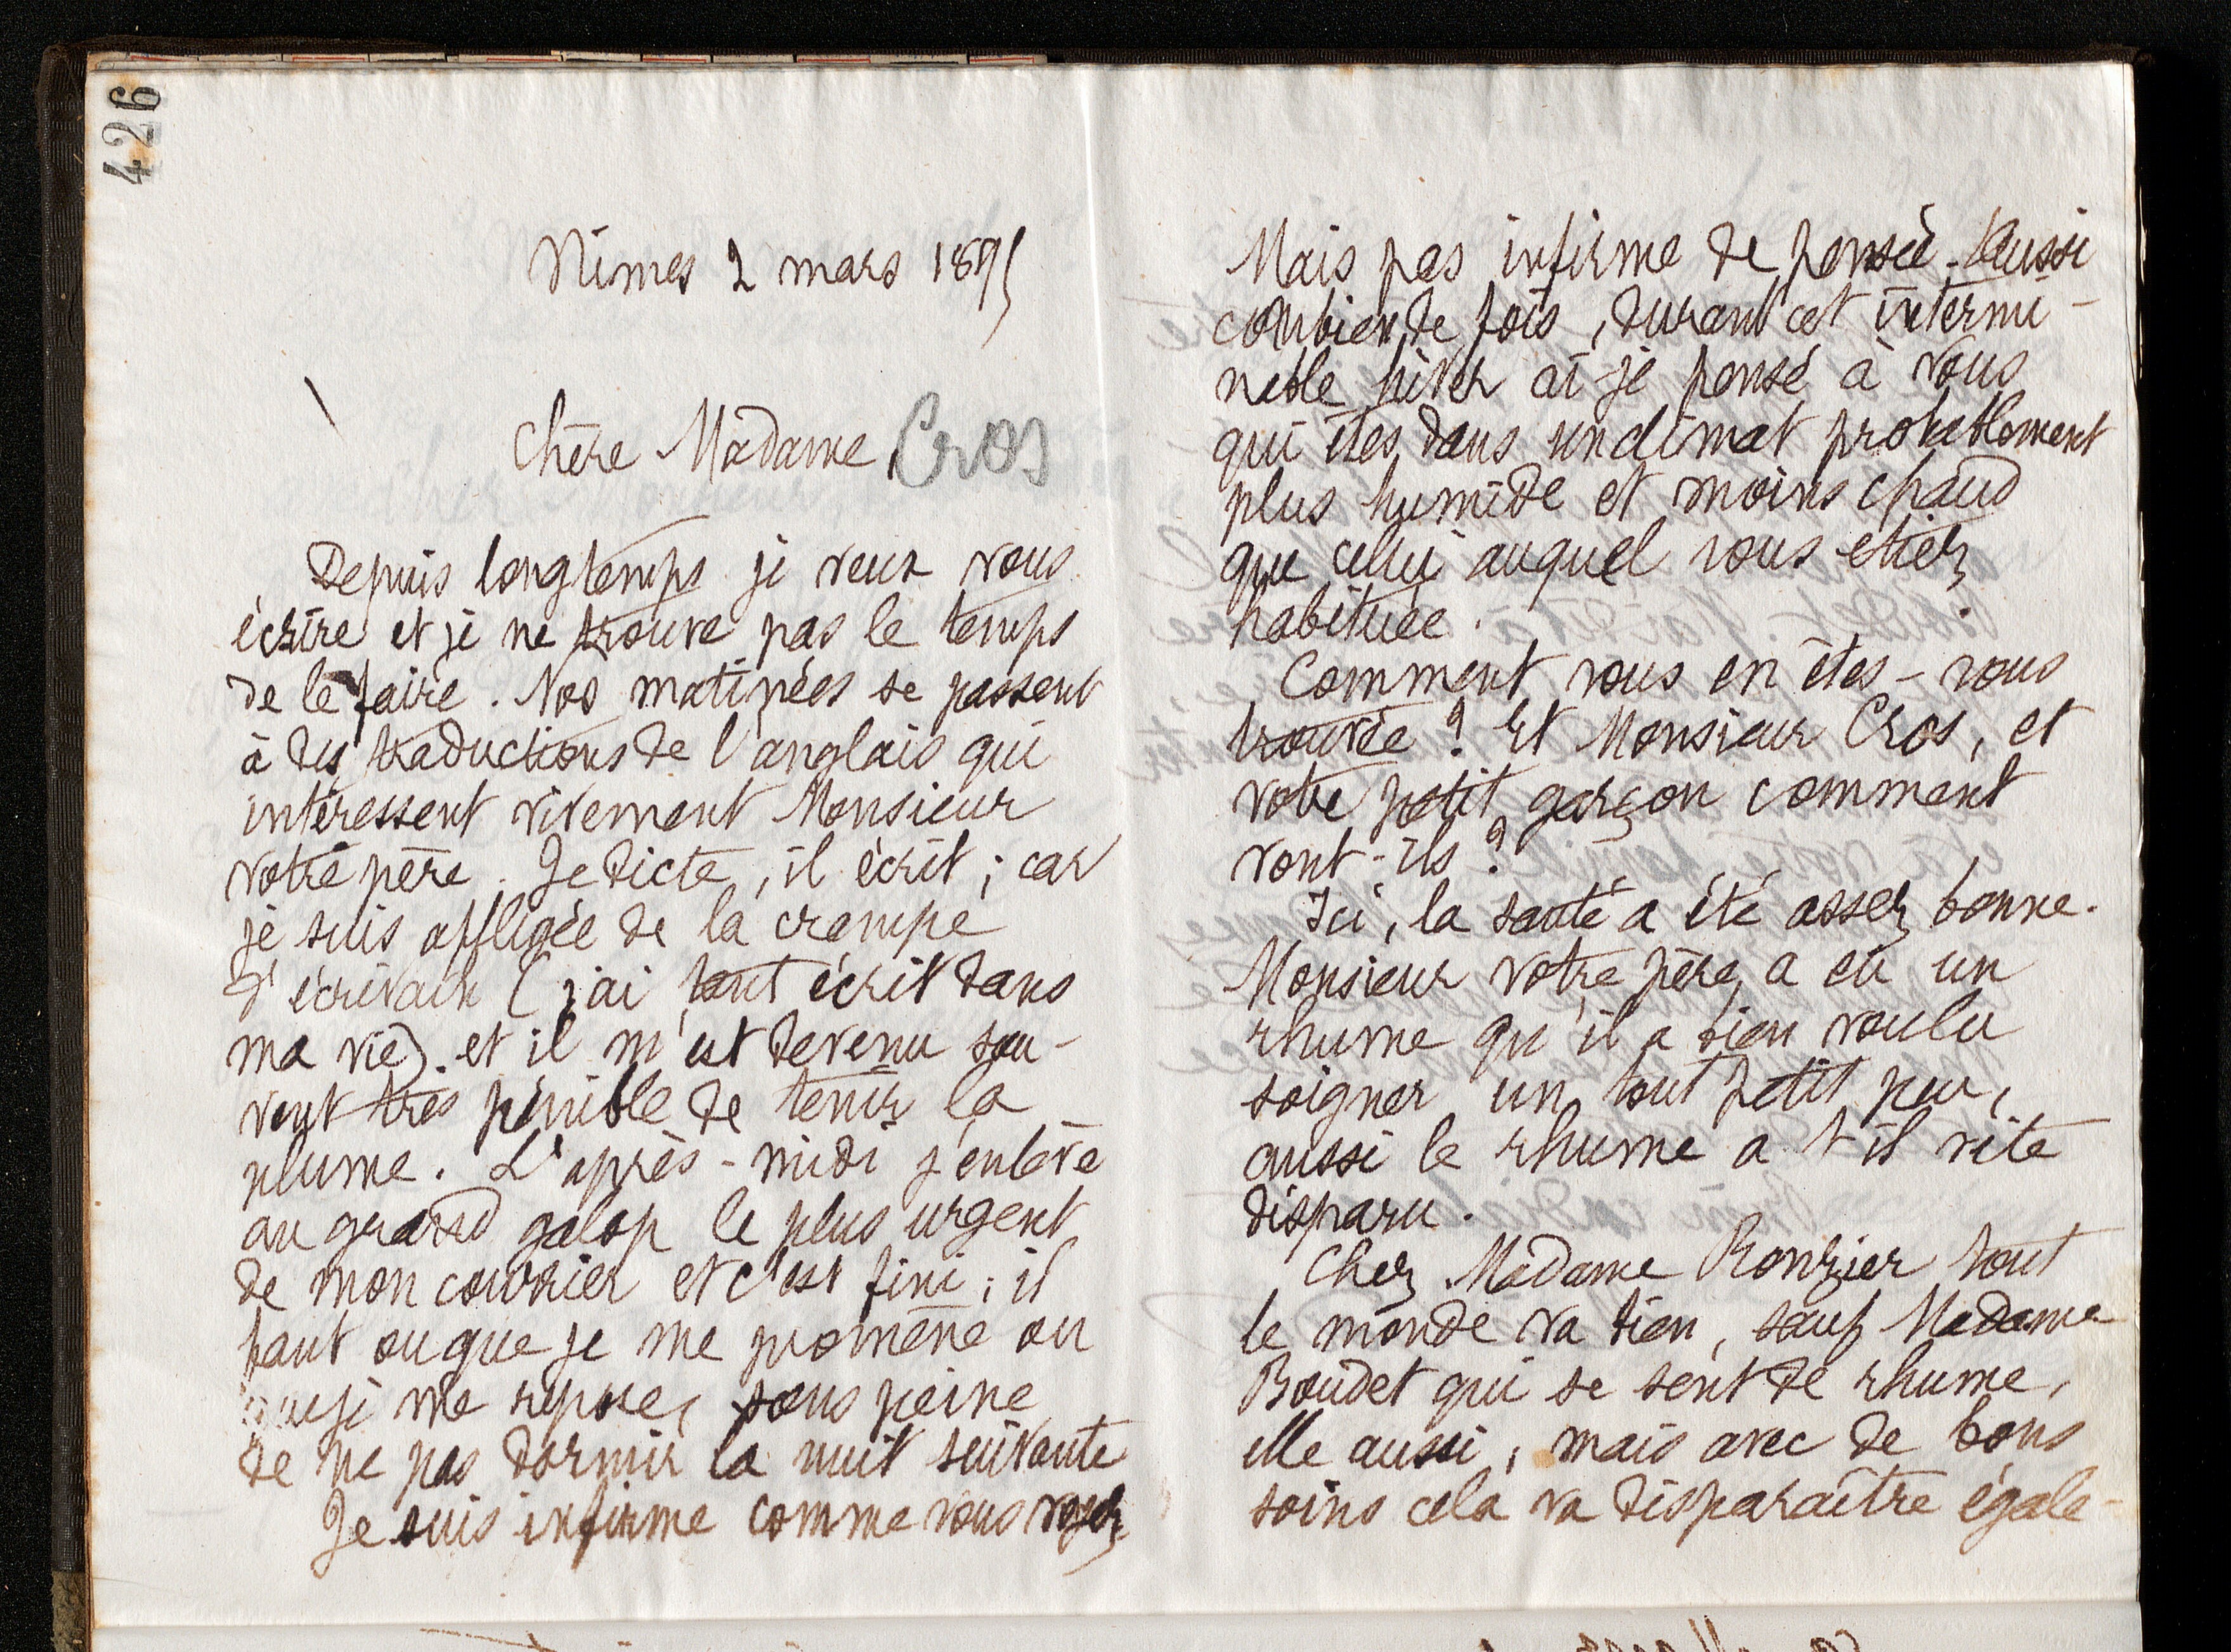 426
Nîmes 2 mars 1895
Chère Madame, Cros
Depuis longtemps je veux vous
écrire et je ne trouve pas le temps
de le faire. Nos matinées se passent
à des traductions de l'anglais qui
intéressent vivement Monsieur
votre père. Je dicte, il écrit ; car
je suis affligée de la crampe
d'écrivain (j'ai tant écrit dans
ma vie). et il m'est devenu sou-
vent très pénible de tenir la
plume. L'après-midi j'enlève
au grand galop le plus urgent
de mon courrier et c'est fini ; il
faut ou que je me promène ou
que je me repose, sous peine
de ne pas dormir la nuit suivante
Je suis infirme comme vous voyez
Mais pas infirme de pensée. Aussi
combien de fois, durant cet intermi-
nable hiver ai-je pensé à vous
qui êtes dans un climat probablement
plus humide et moins chaud
que celui auquel vous etiez
habituée.
Comment vous en êtes-vous
trouvée ? Et Monsieur Cros, et
votre petit garçon comment
vont-ils ?
Ici, la santé a été assez bonne.
Monsieur votre père a eu un
rhume qu'il a bien voulu
soigner un tout petit peu,
aussi le rhume a t il vite
disparu.
Chez Madame Ronzier tout
le monde va bien, sauf Madame
Boudet qui se sent de rhume,
elle aussi, mais avec de bons
soins cela va disparaître égale-